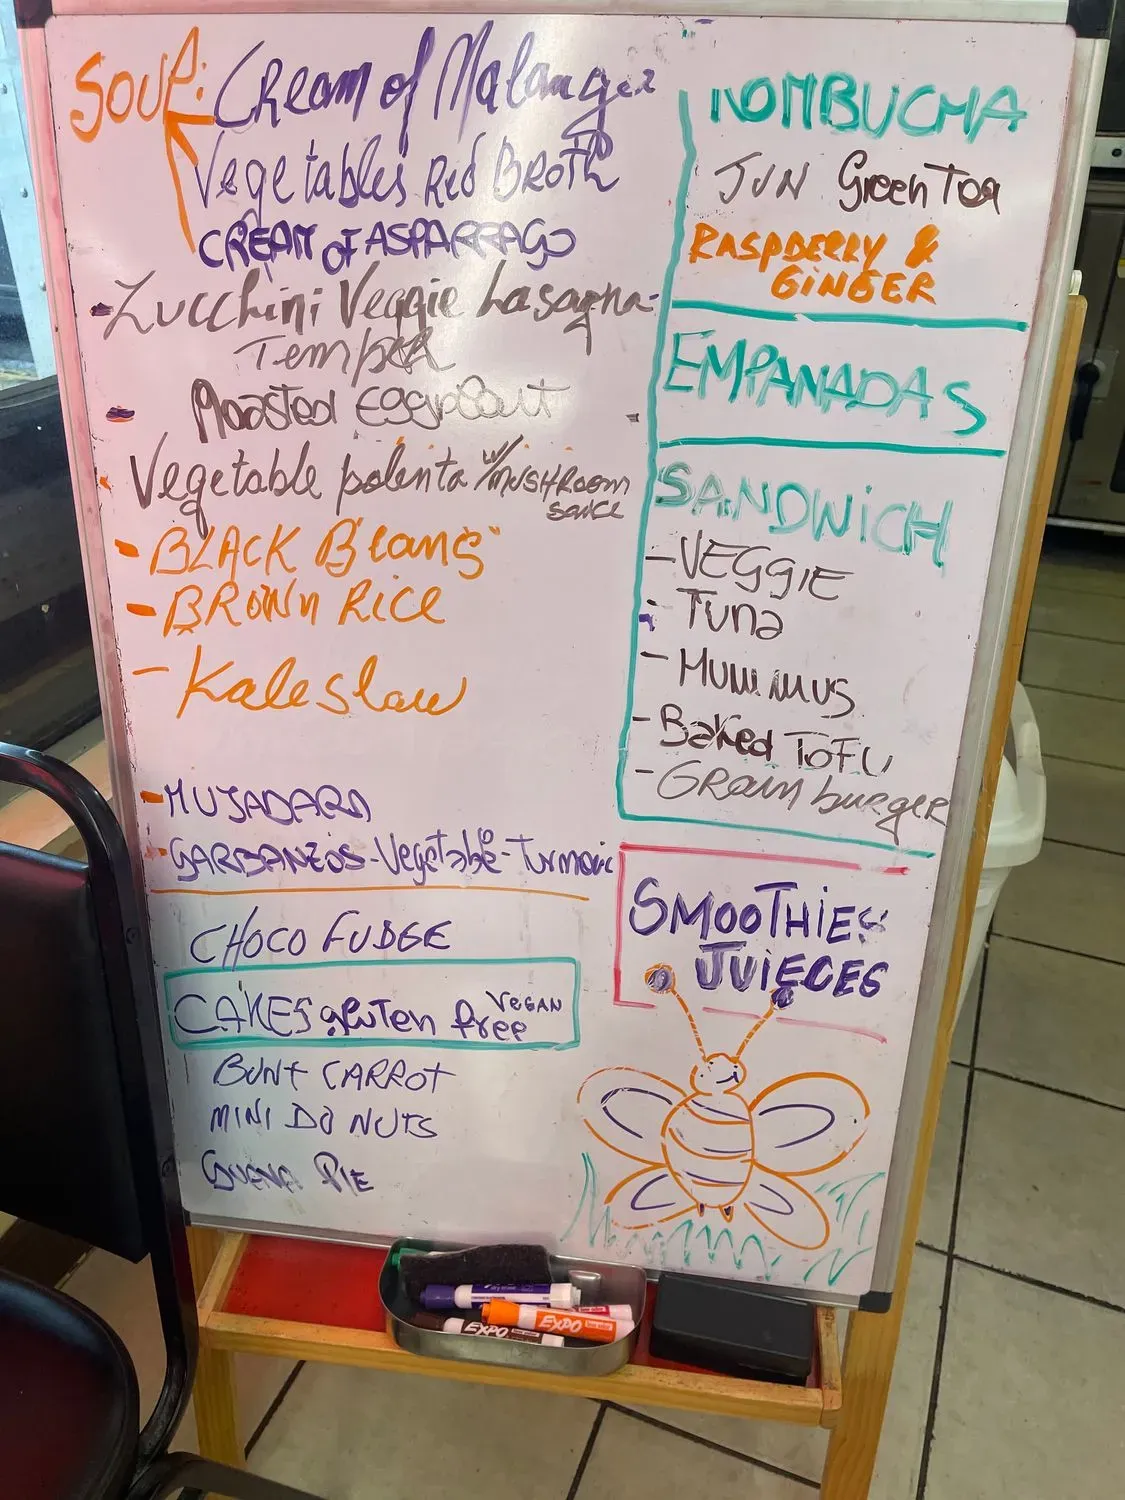 SOUP: Cream of Malanga
Vegetables Red Broth
CREAM of ASPARRAGO
- Zucchini Veggie Lasagna -
Temper
- Roasted Eggplant -
- Vegetable polenta w/ MUSHROOM
sauce
- BLACK Beans
- BROWN RICE
- Kaleslaw
- MUJADARA
- GARBANZOS - Vegetable - Turmeric
CHOCO FUDGE
CAKES gluten free VEGAN
BUNT CARROT
MINI DO NUTS
PIE
KOMBUCHA
JUN Green Tea
RASPBERRY &
GINGER
EMPANADAS
SANDWICH
- VEGGIE
- Tuna
- HUMMUS
- Baked TOFU
- Grain burger
SMOOTHIES
JUIECES
EXPO
EXPO